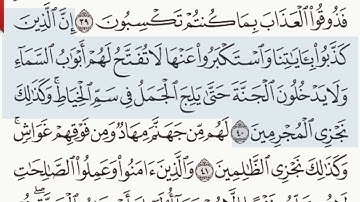 فَذُوقُوا۟ ٱلْعَذَابَ بِمَا كُنتُمْ تَكْسِبُونَ ٣٩ إِنَّ ٱلَّذِينَ
كَذَّبُوا۟ بِـَٔايَـٰتِنَا وَٱسْتَكْبَرُوا۟ عَنْهَا لَا تُفَتَّحُ لَهُمْ أَبْوَٰبُ ٱلسَّمَآءِ
وَلَا يَدْخُلُونَ ٱلْجَنَّةَ حَتَّىٰ يَلِجَ ٱلْجَمَلُ فِى سَمِّ ٱلْخِيَاطِ ۚ وَكَذَٰلِكَ
نَجْزِى ٱلْمُجْرِمِينَ ٤٠ لَهُم مِّن جَهَنَّمَ مِهَادٌ وَمِن فَوْقِهِمْ غَوَاشٍ ۚ
وَكَذَٰلِكَ نَجْزِى ٱلظَّـٰلِمِينَ ٤١ وَٱلَّذِينَ ءَامَنُوا۟ وَعَمِلُوا۟ ٱلصَّـٰلِحَـٰتِ